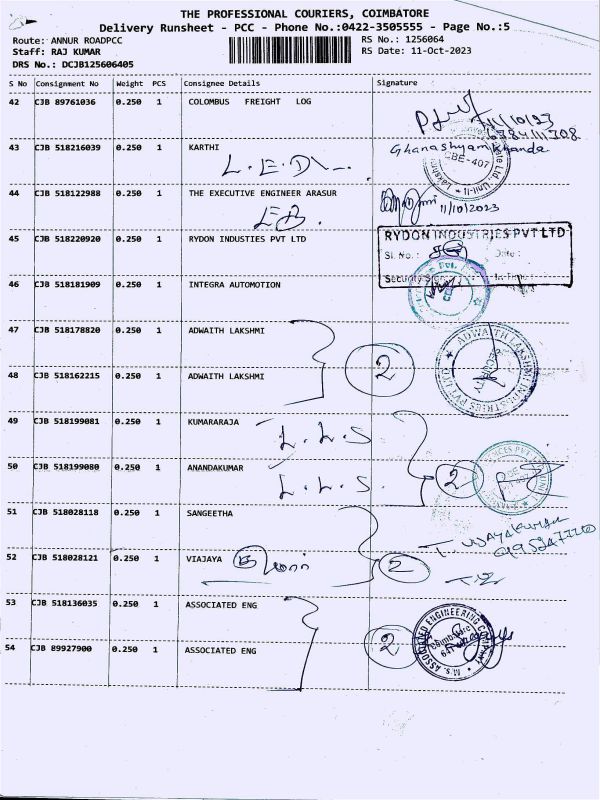 THE PROFESSIONAL COURIERS, COIMBATORE
Delivery Runsheet - PCC - Phone No.:0422-3505555 - Page No.:5
Route: ANNUR ROADPCC RS No.: 1256064
Staff: RAJ KUMAR RS Date: 11-Oct-2023
DRS No.: DCJB125606405
S No Consignment No Weight PCS Consignee Details Signature
42 CJB 89761036 0.250 1 COLOMBUS FREIGHT LOG
11/10/23
43 CJB 518216039 0.250 1 KARTHI Ghanashyam Khanda
CBE-407
44 CJB 518122988 0.250 1 THE EXECUTIVE ENGINEER ARASUR
EB. 11/10/2023
45 CJB 518220920 0.250 1 RYDON INDUSTIES PVT LTD
RYDON INDUSTRIES PVT LTD
Sl. No.: Date:
Security Sign In Time
46 CJB 518181909 0.250 1 INTEGRA AUTOMOTION
47 CJB 518178820 0.250 1 ADWAITH LAKSHMI
2
ADWAITH LAKSHMI INDUSTRIES PVT LTD
48 CJB 518162215 0.250 1 ADWAITH LAKSHMI
49 CJB 518199081 0.250 1 KUMARARAJA
L.L.S
50 CJB 518199080 0.250 1 ANANDAKUMAR
L.L.S. 2
51 CJB 518028118 0.250 1 SANGEETHA
52 CJB 518028121 0.250 1 VIAJAYA
2
53 CJB 518136035 0.250 1 ASSOCIATED ENG
2
M/s. ASSOCIATED ENGINEERING COMPANY
Coimbatore
54 CJB 89927900 0.250 1 ASSOCIATED ENG